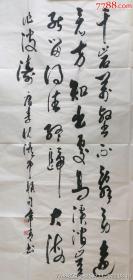 7788.com
千岩萬壑不辭勞遠
看方知出處高溪澗豈
能留得住終歸大海
作波濤 唐李忱